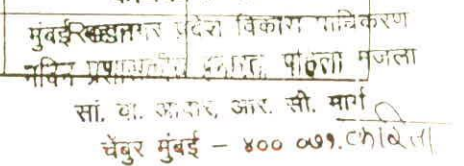 मुंबई महानगर प्रदेश विकास प्राधिकरण
नविन प्रशासकीय इमारत, पहिला मजला
सां. वा. आवार, आर. सी. मार्ग
चेंबुर मुंबई – ४०० ०७१.